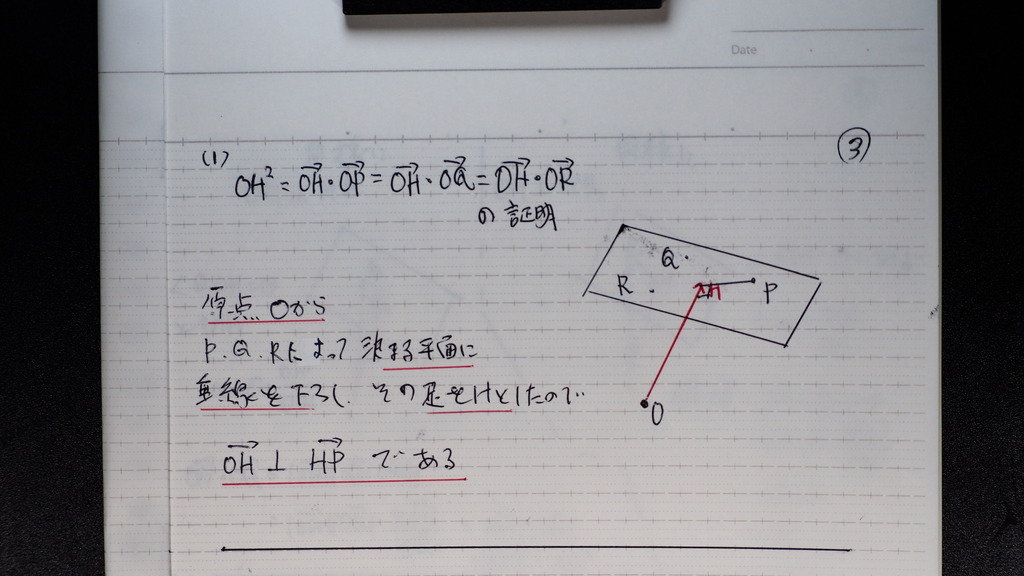 Date
③
(1)
OH² = OH→・OP→ = OH→・OQ→ = OH→・OR→
の証明
原点Oから
P.Q.Rによって決まる平面に
垂線を下ろし、その足をHとしたので
OH→ ⊥ HP→ である
Q
R
H
P
O